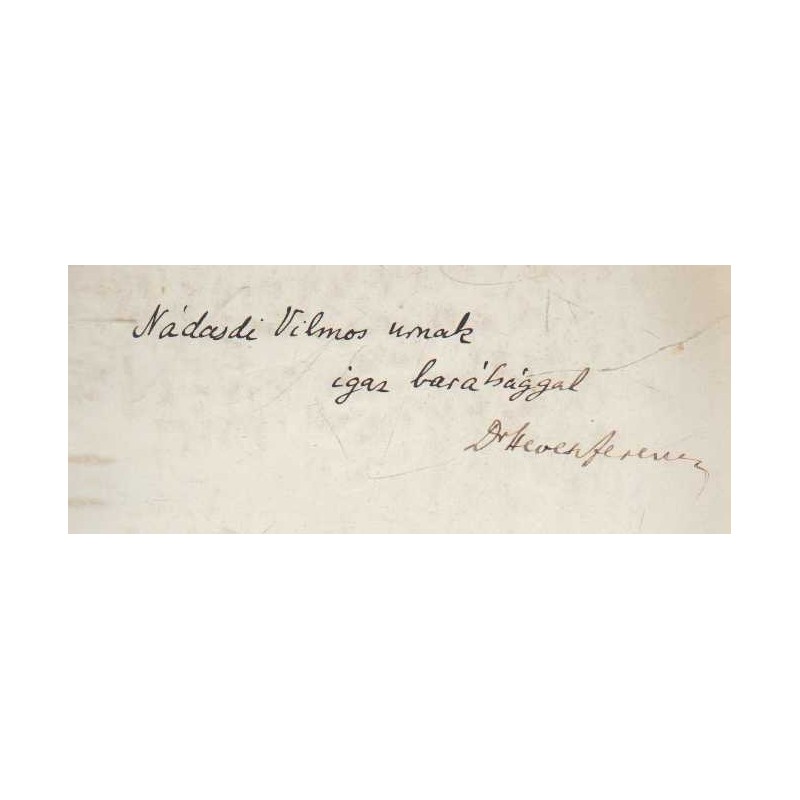 Nádasdi Vilmos urnak
igaz barátsággal
Dr Hevesi Ferenc